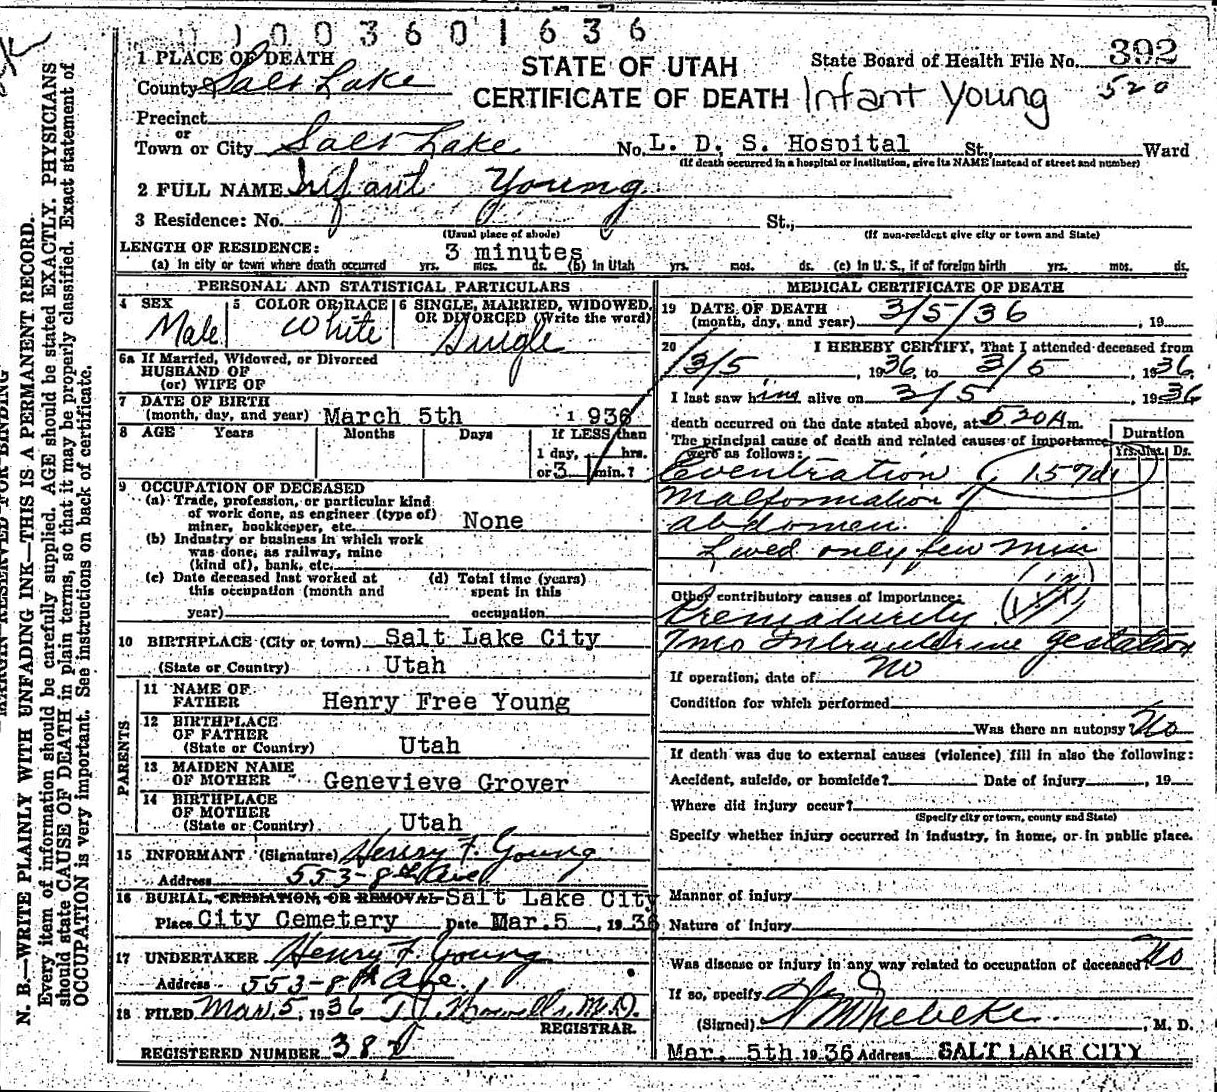 1003601636
1 PLACE OF DEATH
STATE OF UTAH
State Board of Health File No. 392
County Salt Lake
CERTIFICATE OF DEATH Infant Young 520
Precinct
or
Town or City Salt Lake No. L. D. S. Hospital St., Ward
(If death occurred in a hospital or institution, give its NAME instead of street and number)
2 FULL NAME Infant Young
3 Residence: No. St.,
(Usual place of abode) (If non-resident give city or town and State)
LENGTH OF RESIDENCE: 3 minutes
(a) In city or town where death occurred yrs. mos. ds. (b) In Utah yrs. mos. ds. (c) In U. S., if of foreign birth yrs. mos. ds.
PERSONAL AND STATISTICAL PARTICULARS
4 SEX Male
5 COLOR OR RACE White
6 SINGLE, MARRIED, WIDOWED, OR DIVORCED (Write the word) Single
6a If Married, Widowed, or Divorced
HUSBAND OF
(or) WIFE OF
7 DATE OF BIRTH
(month, day, and year) March 5th 1936
8 AGE Years Months Days If LESS than
1 day, hrs.
or 3 min.?
9 OCCUPATION OF DECEASED
(a) Trade, profession, or particular kind
of work done, as engineer (type of)
miner, bookkeeper, etc. None
(b) Industry or business in which work
was done, as railway, mine
(kind of), bank, etc.
(c) Date deceased last worked at
this occupation (month and
year)
(d) Total time (years)
spent in this
occupation
10 BIRTHPLACE (City or town) Salt Lake City
(State or Country) Utah
PARENTS
11 NAME OF
FATHER Henry Free Young
12 BIRTHPLACE
OF FATHER
(State or Country) Utah
13 MAIDEN NAME
OF MOTHER Genevieve Grover
14 BIRTHPLACE
OF MOTHER
(State or Country) Utah
15 INFORMANT (Signature) Henry F. Young
Address 553-8th Ave
16 BURIAL, CREMATION, OR REMOVAL Salt Lake City
Place City Cemetery Date Mar. 5, 1936
17 UNDERTAKER Henry F Young
Address 553-8th Ave.
18 FILED Mar. 5, 1936 M.D.
REGISTRAR.
REGISTERED NUMBER 38
MEDICAL CERTIFICATE OF DEATH
19 DATE OF DEATH
(month, day, and year) 3/5/36, 19
20 I HEREBY CERTIFY, That I attended deceased from
3/5, 1936, to 3/5, 1936,
I last saw him alive on 3/5, 1936
death occurred on the date stated above, at 520A m.
The principal cause of death and related causes of importance
were as follows:
Duration
Yrs. Mos. Ds.
Eventration 157d
Malformation of
abdomen.
Lived only few min
Other contributory causes of importance:
Prematurity
7mo Intrauterine gestation
If operation, date of No
Condition for which performed
Was there an autopsy? No
If death was due to external causes (violence) fill in also the following:
Accident, suicide, or homicide? Date of injury, 19
Where did injury occur?
(Specify city or town, county and State)
Specify whether injury occurred in industry, in home, or in public place.
Manner of injury
Nature of injury
Was disease or injury in any way related to occupation of deceased? No
If so, specify
(Signed) , M. D.
Mar. 5th 1936 Address SALT LAKE CITY
MARGIN RESERVED FOR BINDING
N. B.—WRITE PLAINLY WITH UNFADING INK—THIS IS A PERMANENT RECORD.
Every item of information should be carefully supplied. AGE should be stated EXACTLY. PHYSICIANS
should state CAUSE OF DEATH in plain terms, so that it may be properly classified. Exact statement of
OCCUPATION is very important. See instructions on back of certificate.